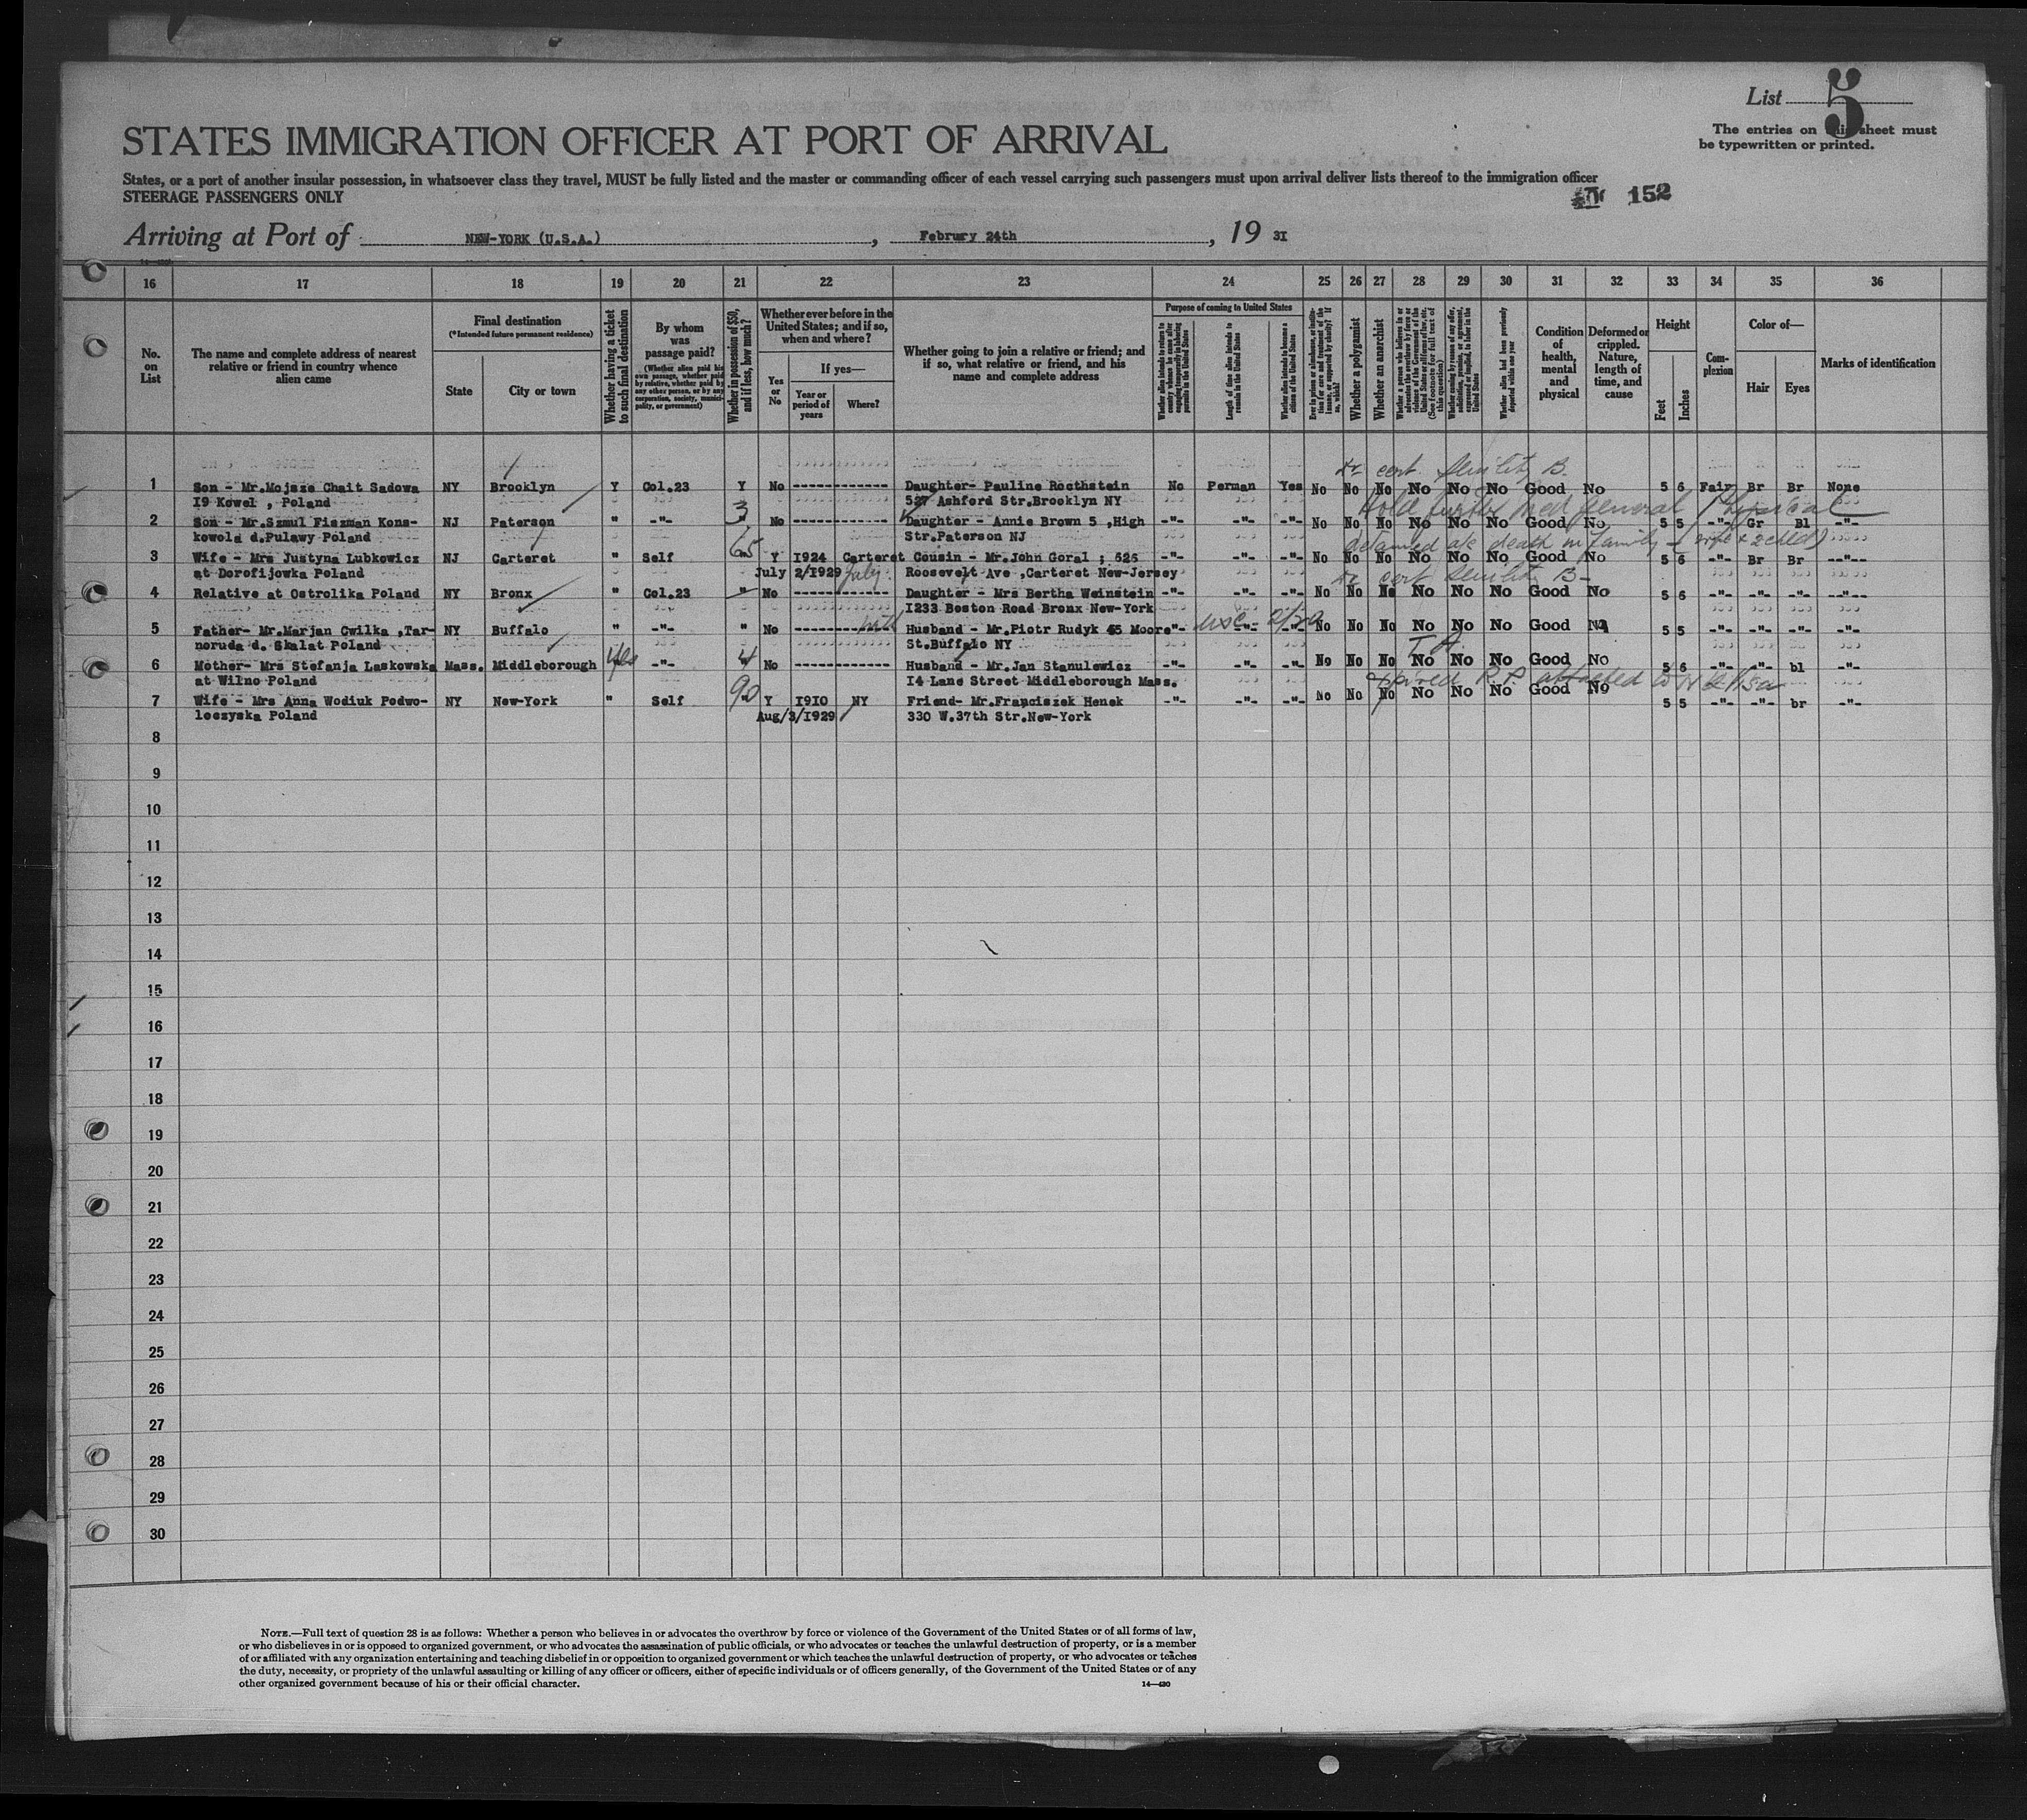 List 5
The entries on this sheet must
be typewritten or printed.
STATES IMMIGRATION OFFICER AT PORT OF ARRIVAL
States, or a port of another insular possession, in whatsoever class they travel, MUST be fully listed and the master or commanding officer of each vessel carrying such passengers must upon arrival deliver lists thereof to the immigration officer
STEERAGE PASSENGERS ONLY
152
Arriving at Port of NEW-YORK (U.S.A.), Februry 24th, 19 3I
16 17 18 19 20 21 22 23 24 25 26 27 28 29 30 31 32 33 34 35 36
No. on List
The name and complete address of nearest relative or friend in country whence alien came
Final destination
(*Intended future permanent residence)
State
City or town
Whether having a ticket to such final destination
By whom was passage paid?
(Whether alien paid his own passage, whether paid by relative, whether paid by any other person, or by any corporation, society, municipality, or government)
Whether in possession of $50, and if less, how much?
Whether ever before in the United States; and if so, when and where?
Yes or No
If yes—
Year or period of years
Where?
Whether going to join a relative or friend; and if so, what relative or friend, and his name and complete address
Purpose of coming to United States
Whether alien intends to return to country whence he came after engaging temporarily in laboring pursuits in the United States
Length of time alien intends to remain in the United States
Whether alien intends to become a citizen of the United States
Whether a polygamist
Whether an anarchist
Whether alien had been previously deported within one year
Condition of health, mental and physical
Deformed or crippled. Nature, length of time, and cause
Height
Feet
Inches
Complexion
Color of—
Hair
Eyes
Marks of identification
cert senility B.
1 Son - Mr.Mojsze Chait Sadowa NY Brooklyn Y Col.23 Y No ------------ Daughter- Pauline Rocthstein No Perman Yes No No No No No No Good No 5 6 Fair Br Br None
I9 Kowel , Poland 527 Ashford Str.Brooklyn NY
Hold further med general Physical
2 Son - Mr.Szmul Fiszman Kons- NJ Paterson " -"- 3 No ------------ Daughter - Annie Brown 5 ,High -"- -"- -"- No No No No No No Good No 5 5 -"- Gr Bl -"-
kowola d.Pulawy Poland Str.Paterson NJ
detained a/c death in family - (wife & 2 child)
3 Wife - Mrs Justyna Lubkowicz NJ Carteret " Self 65 Y I924 Carteret Cousin - Mr.John Goral ; 626 -"- -"- -"- No No No No No No Good No 5 6 -"- Br Br --"--
at Dorofijowka Poland July 2/I929 July Roosevelt Ave ,Carteret New-Jersey
cert senility B-
4 Relative at Ostrolika Poland NY Bronx " Col.23 " No ------------ Daughter - Mrs Bertha Weinstein -"- -"- -"- No No No No No No Good No 5 6 -"- -"- -"- --"--
I233 Boston Road Bronx New-York
5 Father- Mr.Marjan Cwilka ,Tar- NY Buffalo " -"- " No ------------ Husband - Mr.Piotr Rudyk 45 Moore -"- -"- No No No No No No Good No 5 5 -"- -"- -"- -"-
noruda d. Skalat Poland St.Buffalo NY
6 Mother- Mrs Stefanja Laskowska Mass. Middleborough Yes -"- 4 No ------------ Husband - Mr.Jan Stanulewicz -"- -"- -"- No No No No No No Good No 5 6 -"- -"- bl -"-
at Wilno Poland I4 Lane Street Middleborough Mass.
Expired R.P. attached to visa
7 Wife - Mrs Anna Wodiuk Podwo- NY New-York " Self 90 Y I9I0 NY Friend- Mr.Franciszek Henek -"- -"- -"- No No No No No No Good No 5 5 -"- -"- br -"-
loczyska Poland Aug/3/I929 330 W.37th Str.New-York
8
9
10
11
12
13
14
15
16
17
18
19
20
21
22
23
24
25
26
27
28
29
30
NOTE.—Full text of question 28 is as follows: Whether a person who believes in or advocates the overthrow by force or violence of the Government of the United States or of all forms of law,
or who disbelieves in or is opposed to organized government, or who advocates the assassination of public officials, or who advocates or teaches the unlawful destruction of property, or is a member
of or affiliated with any organization entertaining and teaching disbelief in or opposition to organized government or which teaches the unlawful destruction of property, or who advocates or teaches
the duty, necessity, or propriety of the unlawful assaulting or killing of any officer or officers, either of specific individuals or of officers generally, of the Government of the United States or of any
other organized government because of his or their official character.
14—430